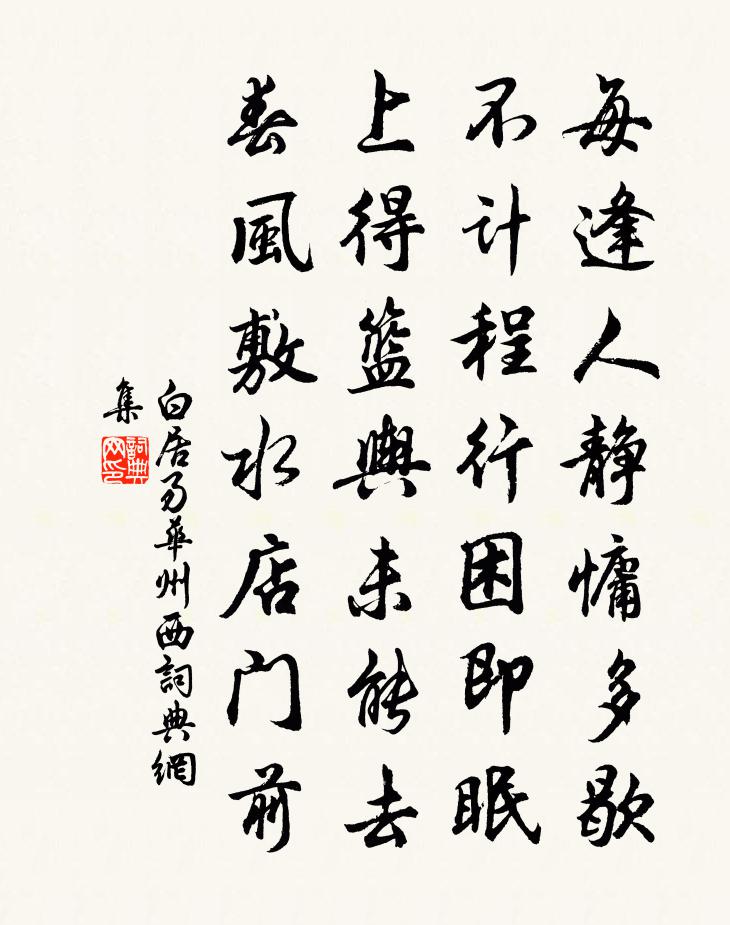 每逢人静慵多歇
不计程行困即眠
上得籃輿未能去
春風敷水店门前
白居易華州西詞典網
集
詞典網印